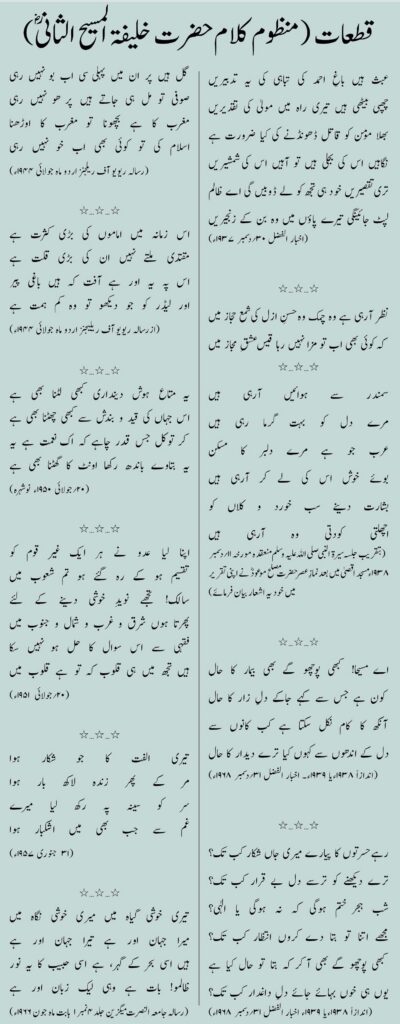 قطعات (منظوم کلام حضرت خلیفۃ المسیح الثانیؓ)
عبث ہیں باغِ احمد کی تباہی کی یہ تدبیریں
چھپی بیٹھی ہیں تیری راہ میں مولیٰ کی تقدیریں
بھلا مؤمن کو قاتل ڈھونڈنے کی کیا ضرورت ہے
نگاہیں اس کی بجلی ہیں تو آہیں اس کی شمشیریں
تری تقصیریں خود ہی تجھ کو لے ڈوبیں گی اے ظالم
لپٹ جائینگی تیرے پاؤں میں وہ بن کے زنجیریں
(اخبار الفضل ۳۰؍دسمبر ۱۹۳۷ء)
☆...☆...☆
نظر آرہی ہے وہ چمک وہ حسنِ ازل کی شمعِ حجاز میں
کہ کوئی بھی اب تو مزا نہیں رہا قیس عشقِ مجاز میں
☆...☆...☆
سمندر سے ہوائیں آرہی ہیں
مرے دل کو بہت گرما رہی ہیں
عرب جو ہے مرے دلبر کا مسکن
بوئے خوش اس کی لے کر آرہی ہیں
بشارت دینے سب خورد و کلاں کو
اچھلتی کودتی وہ آرہی ہیں
(بتقریب جلسہ سیرۃ النبی صلی اللہ علیہ وسلم منعقدہ مورخہ ۱۱؍دسمبر
۱۹۳۸ء مسجد اقصیٰ میں بعد نماز عصر حضرت مصلح موعودؓ نے اپنی تقریر
میں خود یہ اشعار بیان فرمائے)
☆...☆...☆
اے مسیحا! کبھی پوچھو گے بھی بیمار کا حال
کون ہے جس سے کہے جاکے دلِ زار کا حال
آنکھ کا کام نکل سکتا ہے کب کانوں سے
دل کے اندھوں سے کہوں کیا ترے دیدار کا حال
(اندازاً ۱۹۳۸ء یا ۱۹۳۹ء۔ اخبار الفضل ۳۱؍دسمبر ۱۹۶۸ء)
☆...☆...☆
رہے حسرتوں کا پیارے میری جاں شکار کب تک؟
ترے دیکھنے کو ترسے دلِ بے قرار کب تک؟
شبِ ہجر ختم ہوگی کہ نہ ہوگی یا الٰہی؟
مجھے اتنا تو بتا دے کروں انتظار کب تک؟
کبھی پوچھو گے بھی آکر کہ بتا تو حال کیا ہے
یوں ہی خوں بہائے جائے دلِ داغدار کب تک؟
(اندازاً ۱۹۳۸ء یا ۱۹۳۹ء اخبار الفضل ۳۱؍دسمبر ۱۹۶۸ء)
گل ہیں پر ان میں پہلی سی اب بو نہیں رہی
صوفی تو مل ہی جاتے ہیں پر ھو نہیں رہی
مغرب کا ہے بچھونا تو مغرب کا اوڑھنا
اسلام کی تو کوئی بھی اب خو نہیں رہی
(رسالہ ریویو آف ریلیجنز اردو ماہ جولائی ۱۹۴۴ء)
☆...☆...☆
اس زمانہ میں اماموں کی بڑی کثرت ہے
مقتدی ملتے نہیں ان کی بڑی قلت ہے
اس پہ یہ اور ہے آفت کہ ہیں باغی پیر
اور لیڈر کو جو دیکھو تو وہ کم ہمت ہے
(از رسالہ ریویو آف ریلیجنز اردو ماہ جولائی ۱۹۴۴ء)
☆...☆...☆
یہ متاعِ ہوش دینداری کبھی لٹنا بھی ہے
اس جہاں کی قید و بندش سے کبھی چھٹنا بھی ہے
کر توکل جس قدر چاہے کہ اک نعمت ہے یہ
یہ بتا دے باندھ رکھا اونٹ کا گھٹنا بھی ہے
(۲۰؍جولائی ۱۹۵۰ء نوشہرہ)
☆...☆...☆
اپنا لیا عدو نے ہر ایک غیر قوم کو
تقسیم ہو کے رہ گئے ہو تم شعوب میں
سالک! تجھے نویدِ خوشی دینے کے لئے
پھرتا ہوں شرق و غرب و شمال و جنوب میں
فقہی سے اس سوال کا حل ہو نہیں سکا
ہیں تجھ میں ہی قلوب کہ تو ہے قلوب میں
(۲۰؍جولائی ۱۹۵۱ء)
☆...☆...☆
تیری الفت کا جو شکار ہوا
مر کے پھر زندہ لاکھ بار ہوا
سر کو سینہ پہ رکھ لیا میرے
غم سے جب بھی میں اشکبار ہوا
(۳۱ جنوری ۱۹۵۷ء)
☆...☆...☆
تیری خوشی گیاہ میں میری خوشی نگاہ میں
میرا جہان اور ہے تیرا جہان اور ہے
ہیں اسی بحر کے گہر، ہے اسی حبیب کا یہ نور
ظالمو! بات ہے وہی لیک زبان اور ہے
(رسالہ جامعہ النصرت میگزین جلد ۴ نمبر ۱ بابت ماہ جون ۱۹۶۶ء)